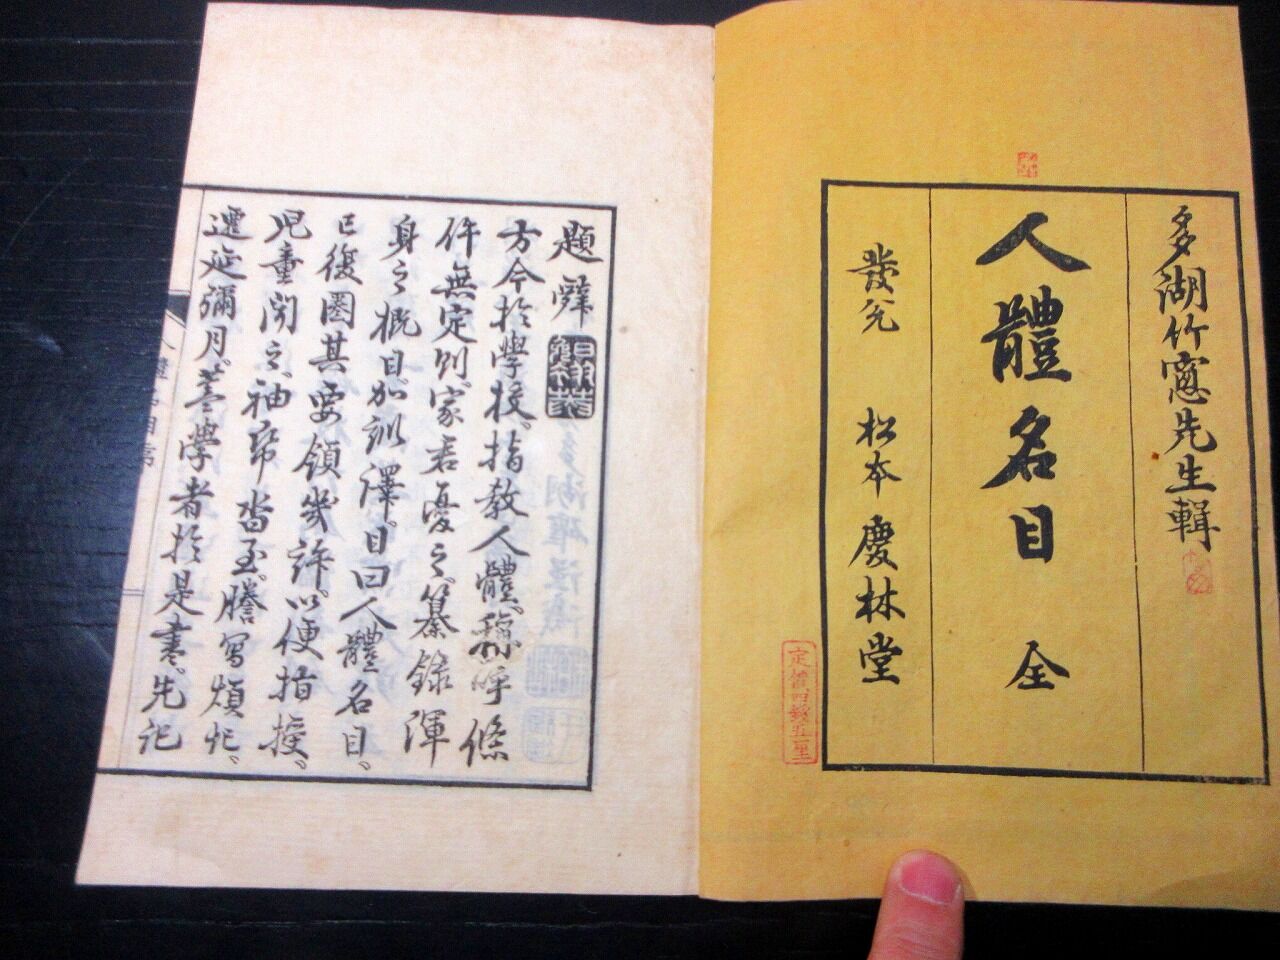 多湖竹窓先生輯
人體名目 全
發兌 松本 慶林堂
題辭
方今於學校、指教人體、稱呼條
件無定則、家君憂之、纂錄渾
身之概目、加訓譯、目曰人體名目、
已復圏其要領幾許、以便指授、
児童聞之、袖帋沓至、謄写煩忙、
遷延彌月、葢学者於是書、先記